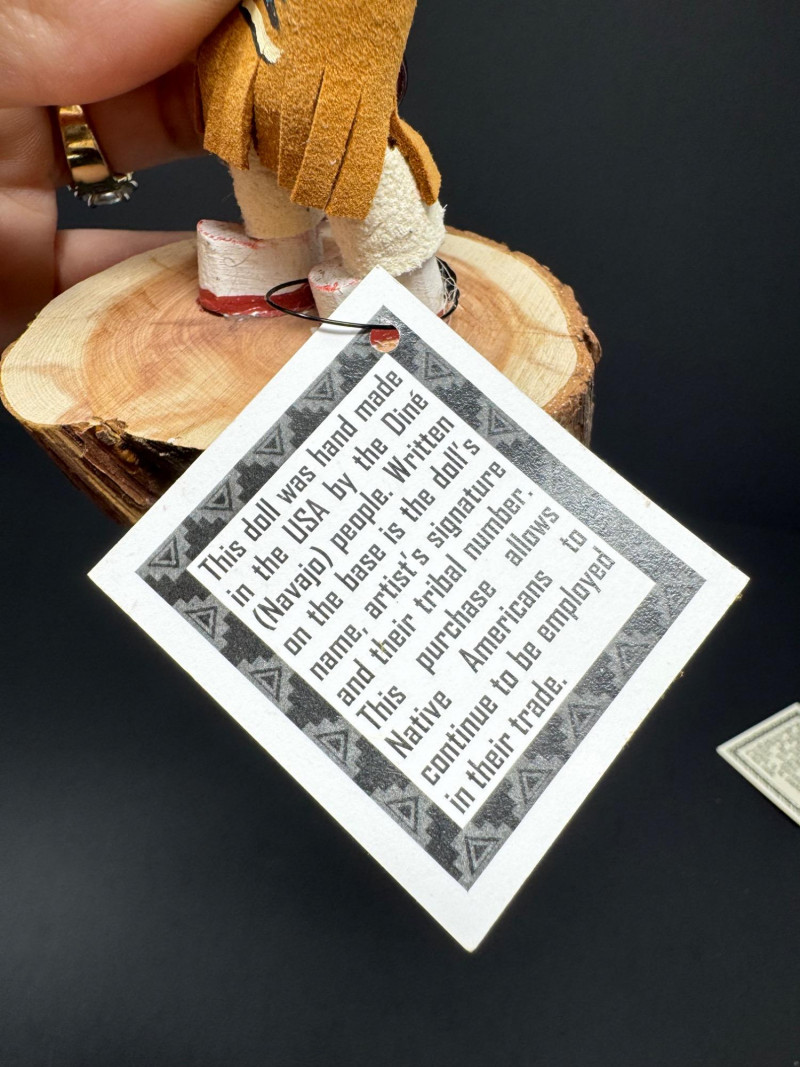 This doll was hand made
in the USA by the Diné
(Navajo) people. Written
on the base is the doll's
name, artist's signature
and their tribal number.
This purchase allows
Native Americans to
continue to be employed
in their trade.